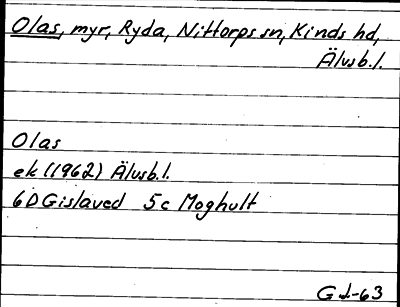 Olas, myr, Ryda, Nittorps sn, Kinds hd,
Älvsb.l.
Olas
ek (1962) Älvsb.l.
6D Gislaved 5c Moghult
GJ-63